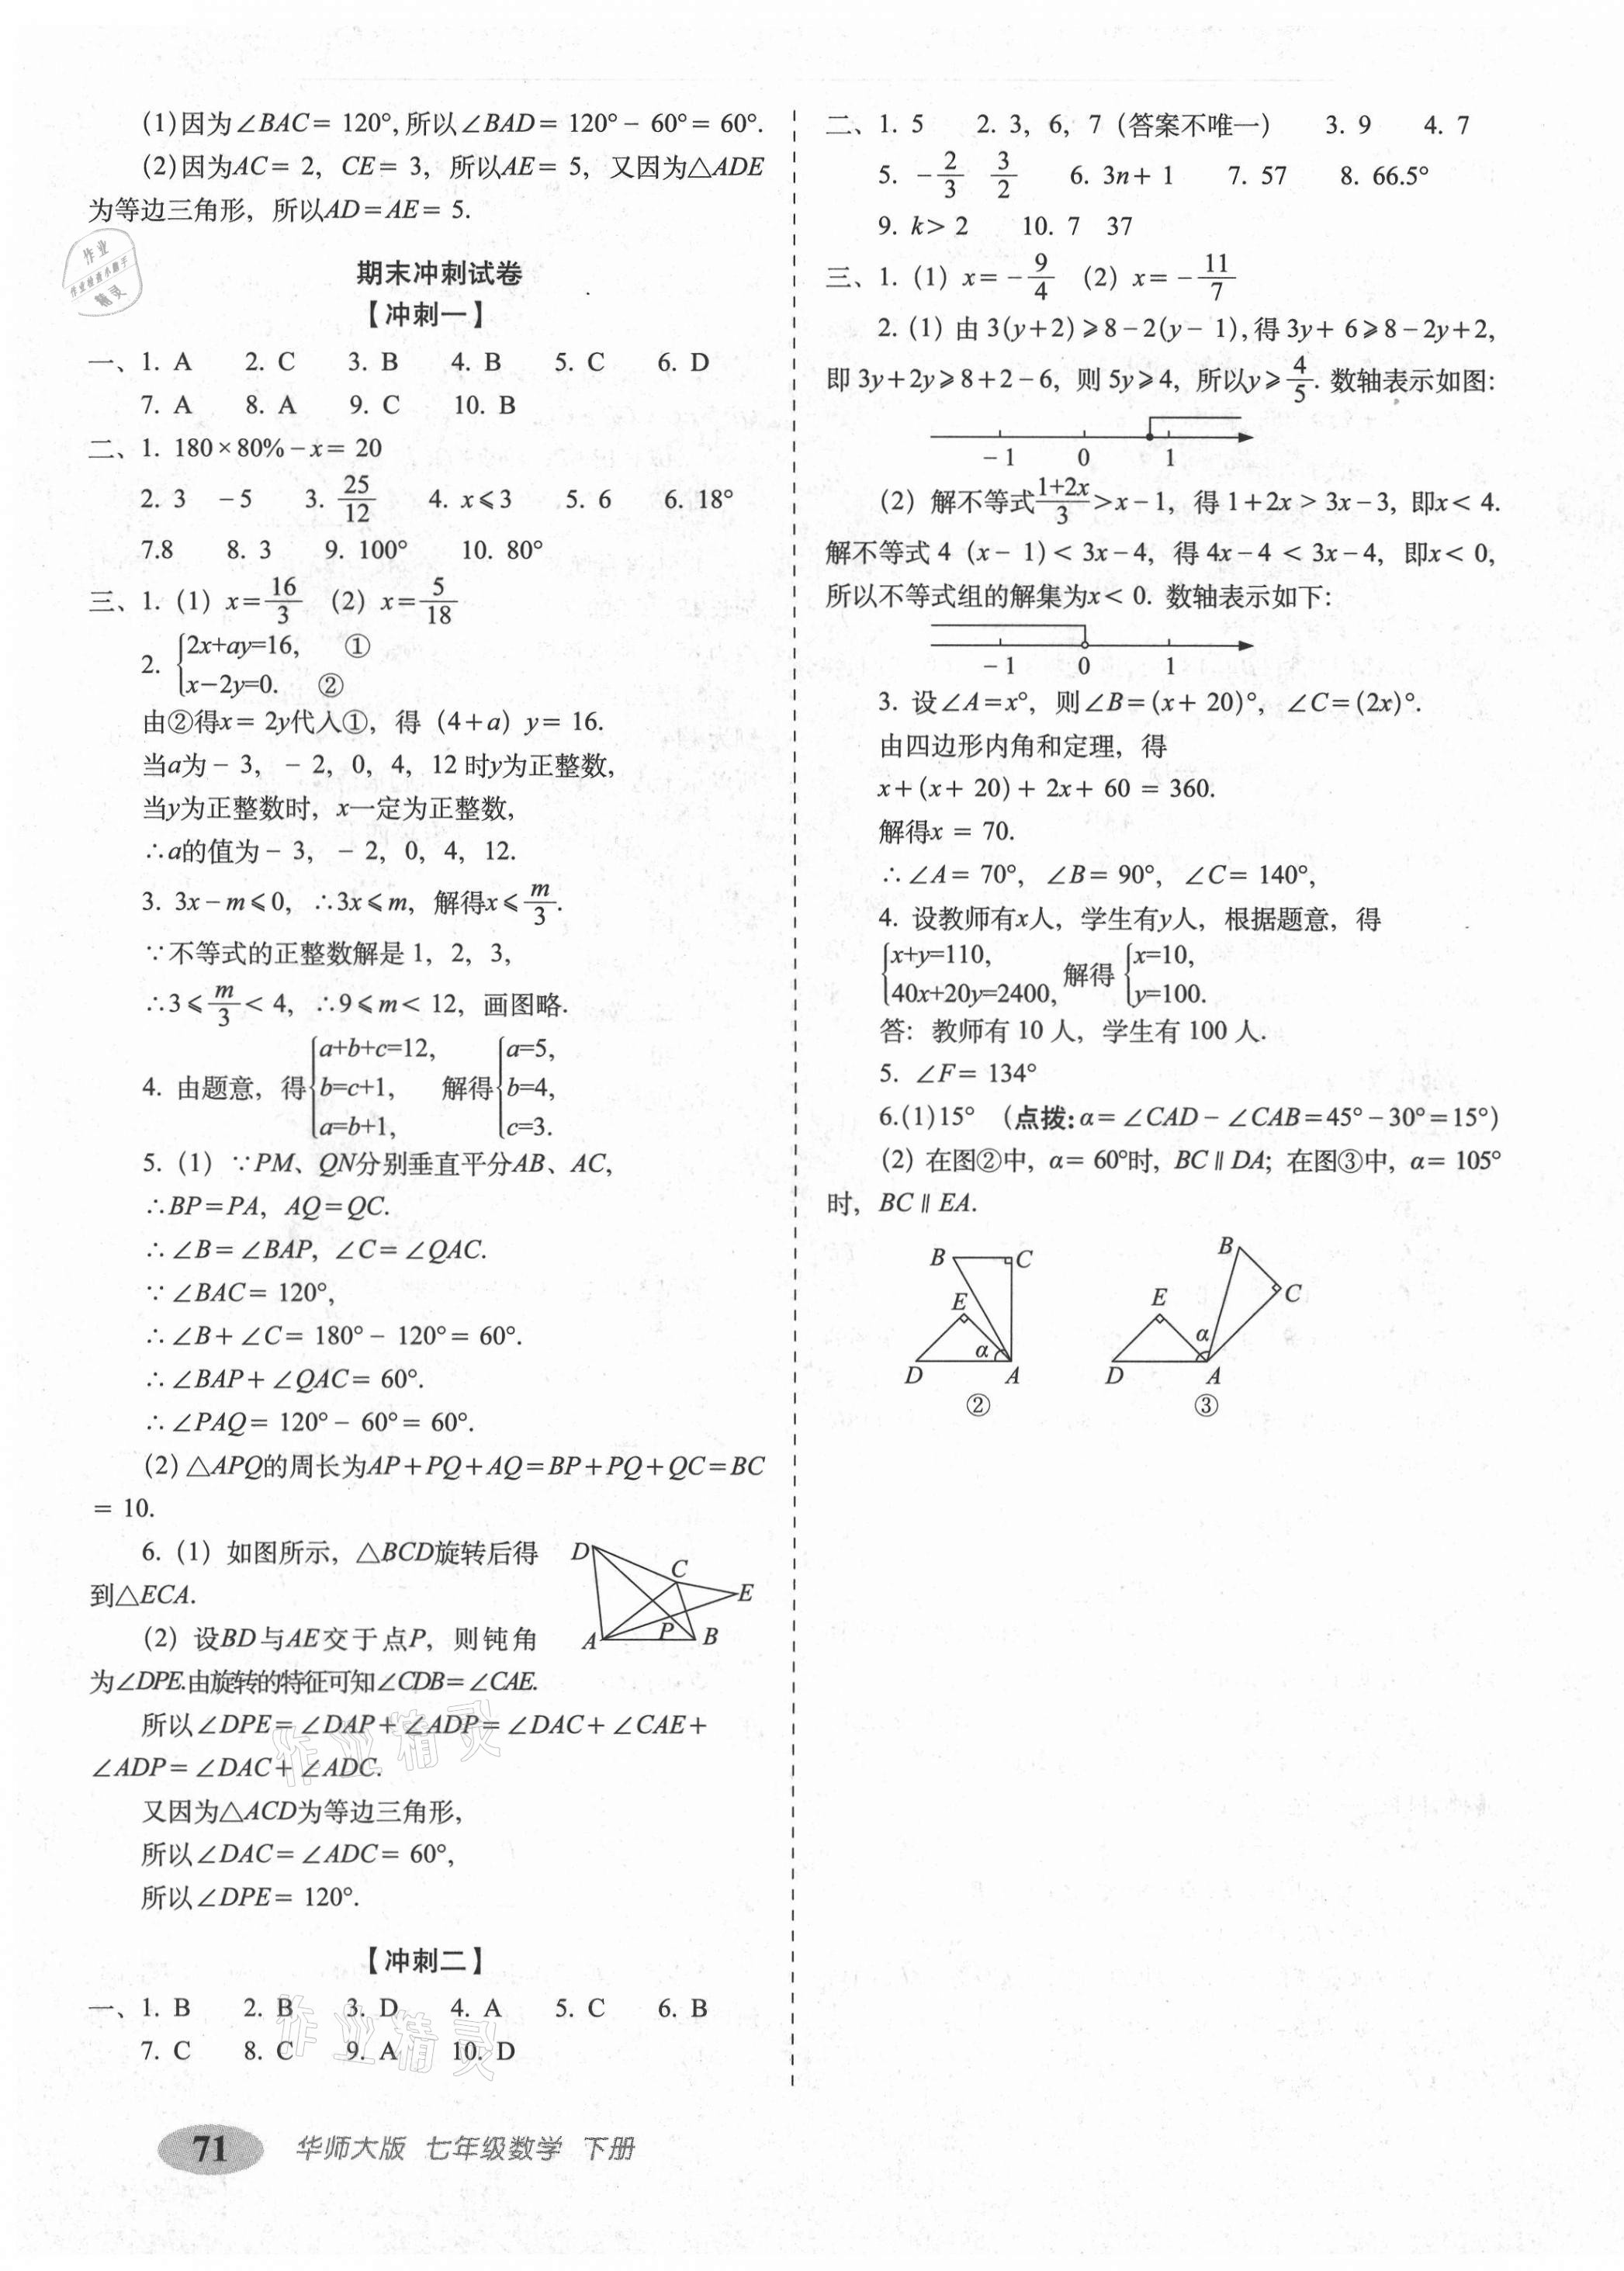 (1)因为∠BAC= 120°,所以∠BAD= 120°− 60°= 60°.
(2)因为AC= 2, CE= 3, 所以AE= 5, 又因为△ADE
为等边三角形, 所以AD=AE= 5.
期末冲刺试卷
【冲刺一】
一、1. A 2. C 3. B 4. B 5. C 6. D
7. A 8. A 9. C 10. B
二、1. 180×80%−x= 20
2. 3 −5 3. 25/12 4. x⩽3 5. 6 6. 18°
7.8 8. 3 9. 100° 10. 80°
三、1. (1) x=16/3 (2) x=5/18
2. {2x+ay=16, ①
x−2y=0. ②
由②得x= 2y代入①, 得 (4+a) y= 16.
当a为− 3, − 2, 0, 4, 12 时y为正整数,
当y为正整数时, x一定为正整数,
∴a的值为− 3, − 2, 0, 4, 12.
3. 3x−m⩽0, ∴3x⩽m, 解得x⩽m/3.
∵不等式的正整数解是 1, 2, 3,
∴3⩽m/3< 4, ∴9⩽m< 12, 画图略.
4. 由题意, 得{a+b+c=12, b=c+1, a=b+1, 解得{a=5, b=4, c=3.
5. (1) ∵PM、QN分别垂直平分AB、AC,
∴BP=PA, AQ=QC.
∴∠B=∠BAP, ∠C=∠QAC.
∵∠BAC= 120°,
∴∠B+∠C= 180°− 120°= 60°.
∴∠BAP+∠QAC= 60°.
∴∠PAQ= 120°− 60°= 60°.
(2)△APQ的周长为AP+PQ+AQ=BP+PQ+QC=BC
= 10.
6. (1) 如图所示, △BCD旋转后得
到△ECA.
(2) 设BD与AE交于点P, 则钝角
为∠DPE.由旋转的特征可知∠CDB=∠CAE.
D C E A P B
所以∠DPE=∠DAP+∠ADP=∠DAC+∠CAE+
∠ADP=∠DAC+∠ADC.
又因为△ACD为等边三角形,
所以∠DAC=∠ADC= 60°,
所以∠DPE= 120°.
【冲刺二】
一、1. B 2. B 3. D 4. A 5. C 6. B
7. C 8. C 9. A 10. D
二、1. 5 2. 3, 6, 7 (答案不唯一) 3. 9 4. 7
5. −2/3 3/2 6. 3n+ 1 7. 57 8. 66.5°
9. k> 2 10. 7 37
三、1. (1) x=−9/4 (2) x=−11/7
2. (1) 由 3(y+2)⩾8−2(y− 1),得 3y+ 6⩾8−2y+2,
即 3y+2y⩾8+2−6, 则 5y⩾4, 所以y⩾4/5. 数轴表示如图:
−1 0 1
(2) 解不等式1+2x/3>x−1, 得 1+2x > 3x−3, 即x< 4.
解不等式 4 (x− 1)< 3x−4, 得 4x−4 < 3x−4, 即x< 0,
所以不等式组的解集为x< 0. 数轴表示如下:
−1 0 1
3. 设∠A=x°, 则∠B=(x+ 20)°, ∠C=(2x)°.
由四边形内角和定理, 得
x+(x+ 20)+ 2x+ 60 = 360.
解得x = 70.
∴∠A= 70°, ∠B= 90°, ∠C= 140°,
4. 设教师有x人, 学生有y人, 根据题意, 得
{x+y=110, 40x+20y=2400, 解得 {x=10, y=100.
答: 教师有 10 人, 学生有 100 人.
5. ∠F= 134°
6.(1)15° (点拨:α=∠CAD−∠CAB=45°−30°=15°)
(2) 在图②中, α= 60°时, BC∥DA; 在图③中, α= 105°
时, BC∥EA.
B C E α D A ②
B C E α D A ③
71 华师大版 七年级数学 下册
作业精灵
作业精灵